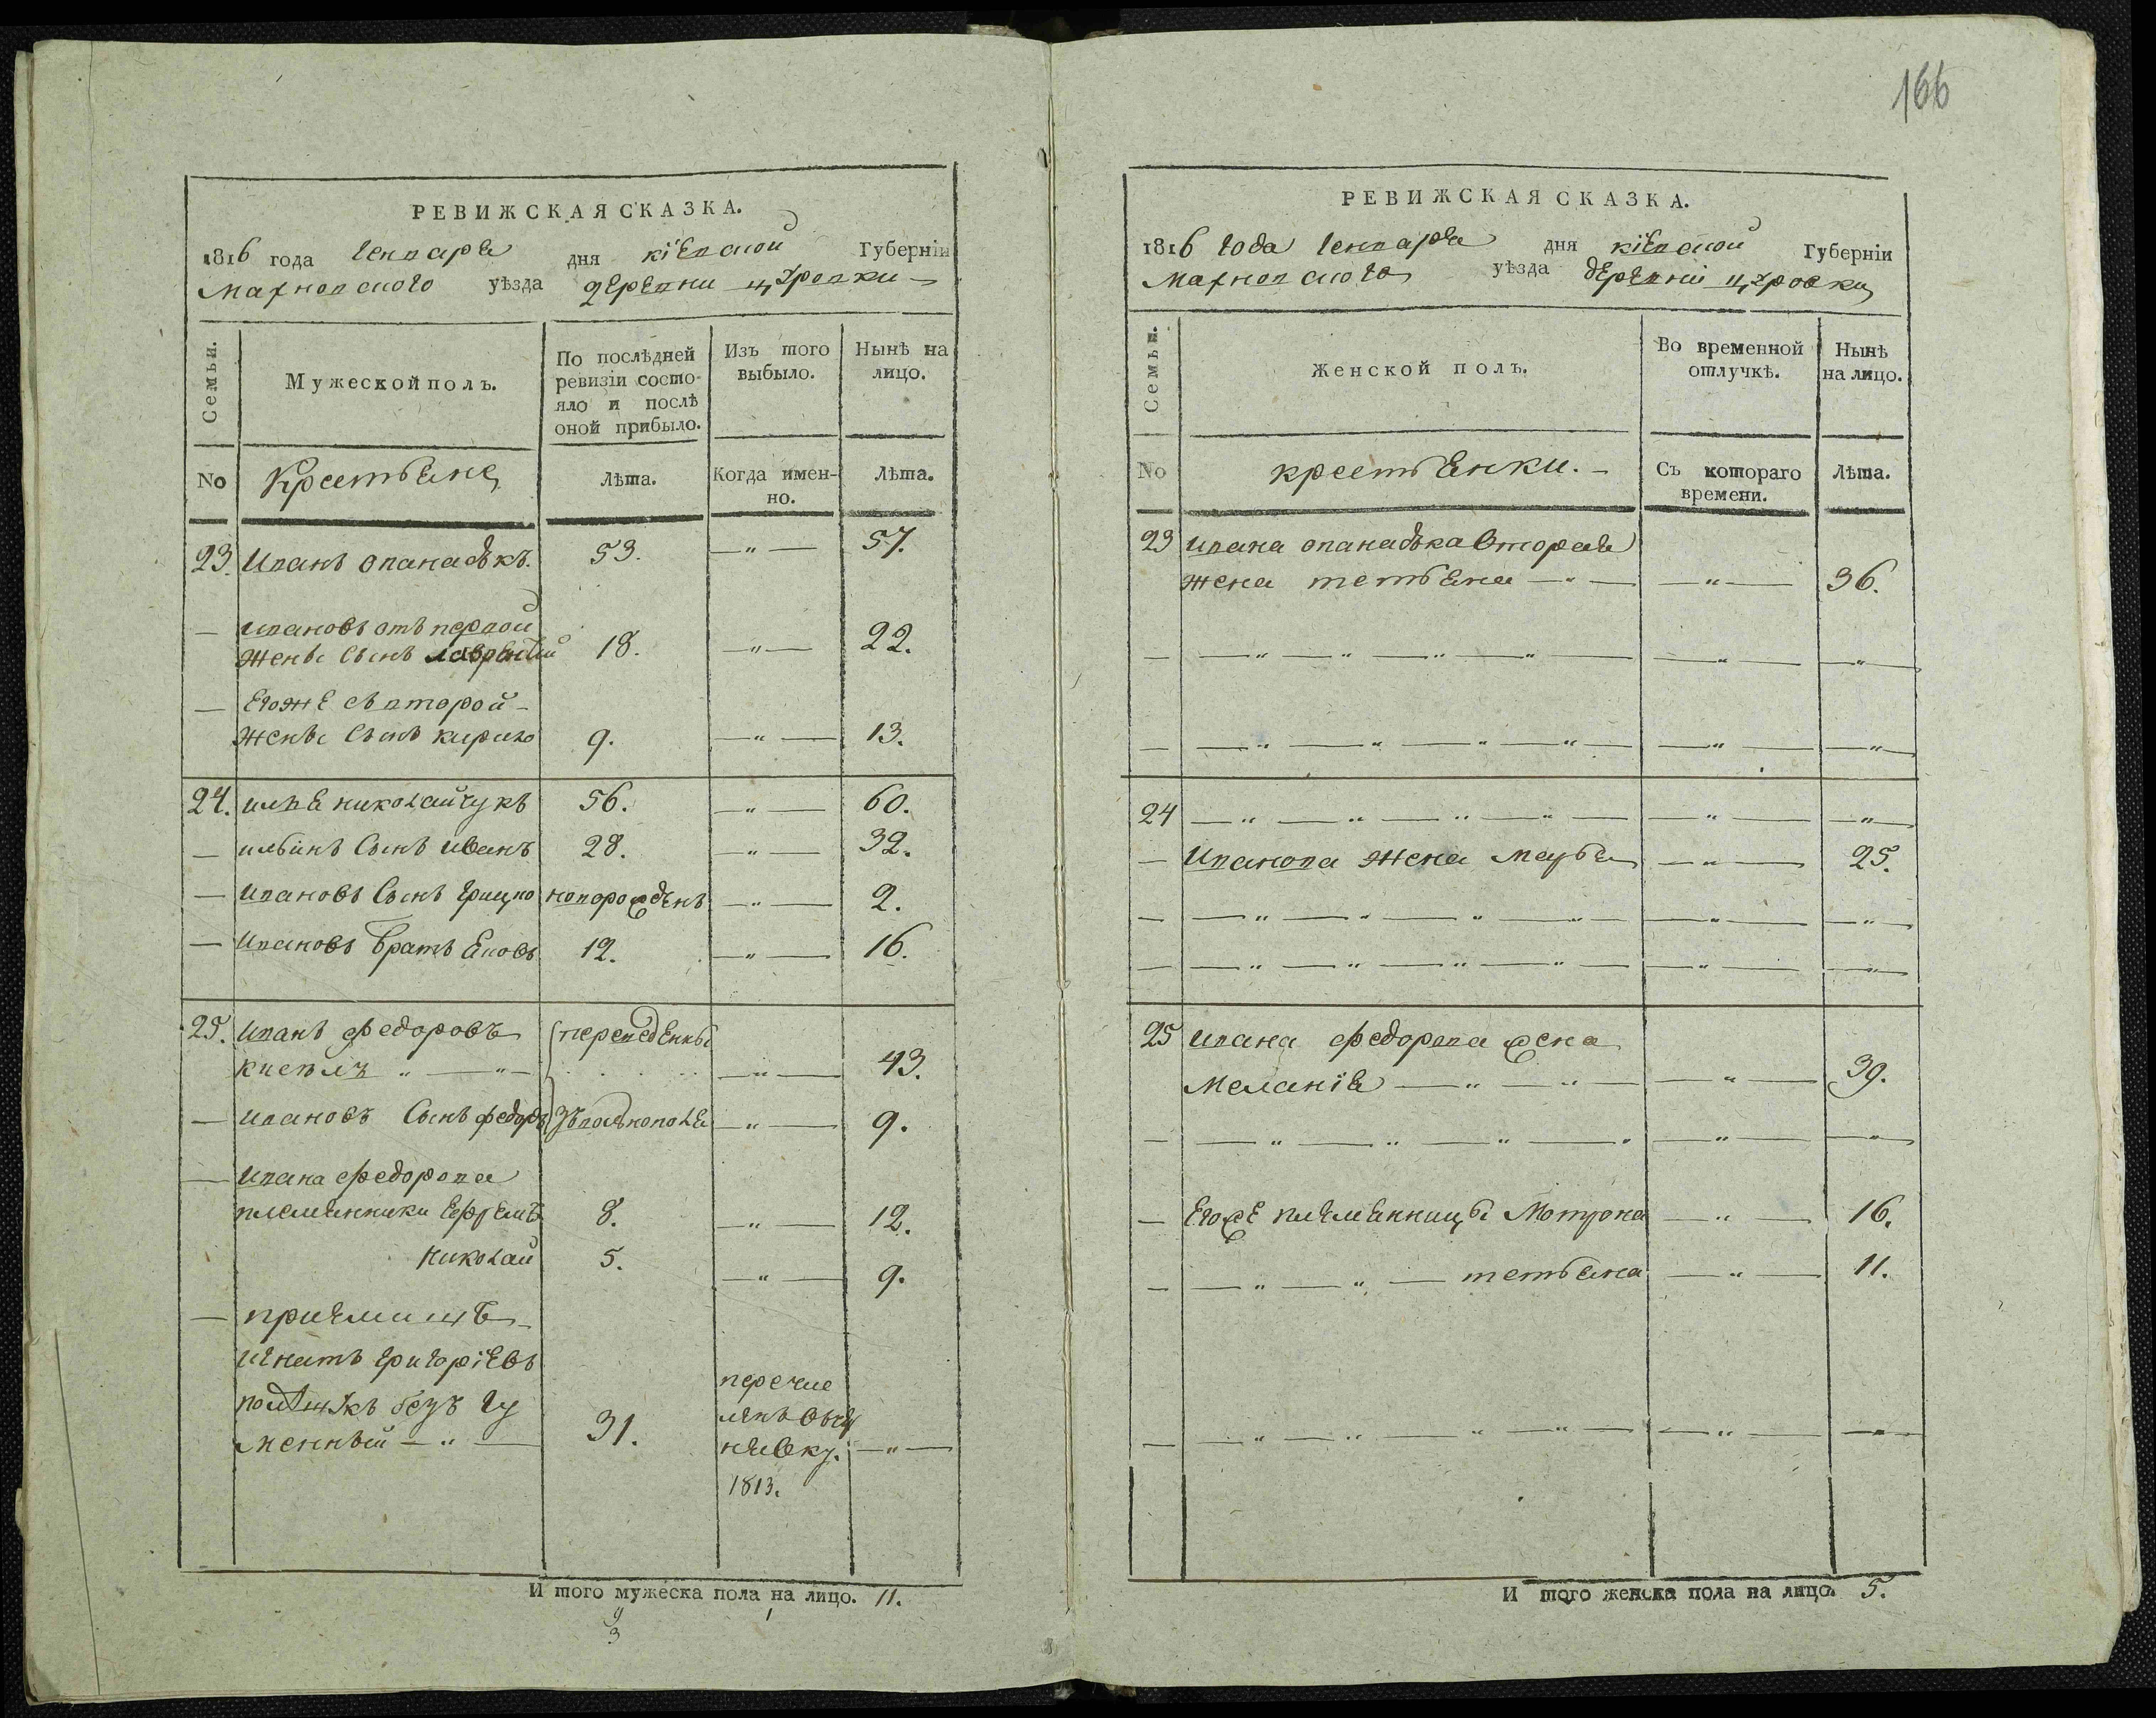 166
РЕВИЖСКАЯ СКАЗКА.
1816 года Генваря дня Кіевской Губерніи
Махновского уѣзда деревни Щуровки
Семьи.
Мужеской полъ.
По послѣдней ревизіи состо-
яло и послѣ оной прибыло.
Изъ того выбыло.
Нынѣ на лицо.
No Крестьяне лѣта. Когда имен-
но. лѣта.
23. Иванъ Опанасюкъ. 53. —"— 57.
— Ивановъ отъ первой
жены сынъ Лаврентий 18. —"— 22.
— Егоже съ второй
жены сынъ Кирило 9. —"— 13.
24. Илья Николайчукъ 56. —"— 60.
— Ильинъ сынъ Иванъ 28. —"— 32.
— Ивановъ сынъ Грицко новорожденъ —"— 2.
— Ивановъ братъ Яковъ 12. —"— 16.
25. Иванъ Федоровъ переведенны
Киселъ "—"— —"— 43.
— Ивановъ сынъ Федоръ —"— 9.
— Ивана Федорова
племянники Ефремъ 8. —"— 12.
Николай 5. —"— 9.
— приемишъ
Игнатъ Григоріевъ
31.
перечис
ленъ
1813.
—"—
И того мужеска пола на лицо. 11.
РЕВИЖСКАЯ СКАЗКА.
1816 года Генваря дня Кіевской Губерніи
Махновского уѣзда деревни Щуровки
Семьи.
Женской полъ.
Во временной отлучкѣ.
Нынѣ на лицо.
No Крестьянки. Съ котораго
времени. лѣта.
23 Ивана Опанасюка вторая
жена Тетьяна —"— —"— 36.
24 —"—"—"—"— —"— —"—
— Иванова жена Марья —"— 25.
25 Ивана Федорова жена
Меланія —"—"— —"— 39.
— Егоже племянницы Мотрона —"— 16.
— —"—"— Тетьяна —"— 11.
И того женска пола на лицо. 5.